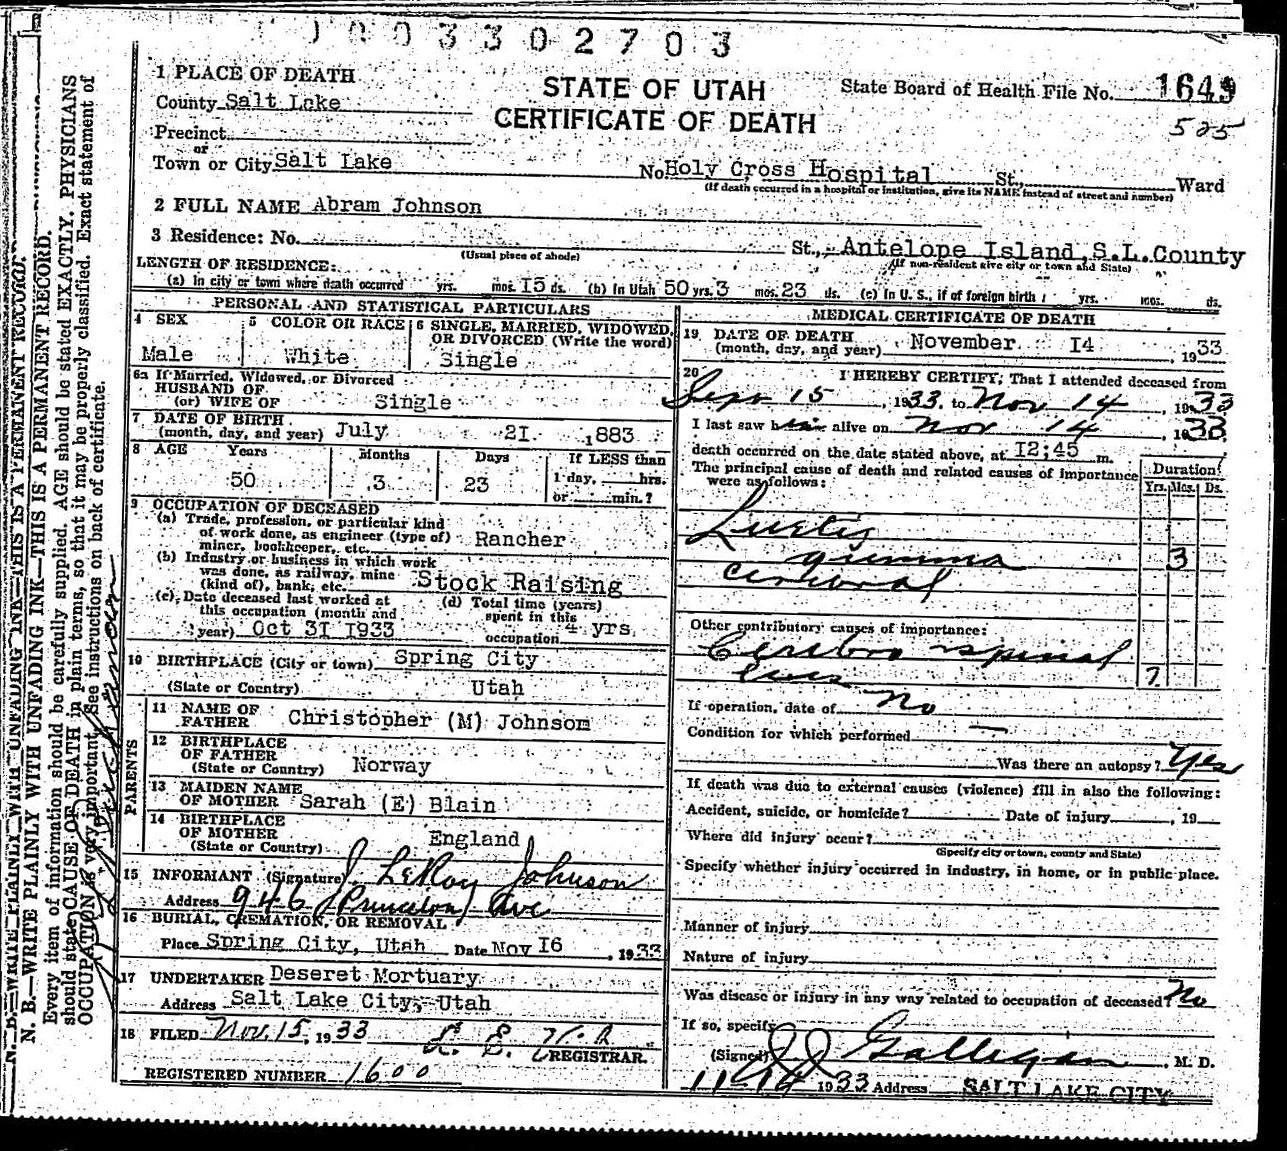 0 0 3 3 0 2 7 0 3
STATE OF UTAH
CERTIFICATE OF DEATH
State Board of Health File No. 1649
525
1 PLACE OF DEATH
County Salt Lake
Precinct
or
Town or City Salt Lake No. Holy Cross Hospital St., Ward
(If death occurred in a hospital or institution, give its NAME instead of street and number)
2 FULL NAME Abram Johnson
3 Residence: No. St., Antelope Island, S.L. County
(Usual place of abode) (If non-resident give city or town and State)
LENGTH OF RESIDENCE:
(a) In city or town where death occurred yrs. mos. I5 ds. (b) In Utah 50 yrs. 3 mos. 23 ds. (c) In U. S., if of foreign birth yrs. mos. ds.
PERSONAL AND STATISTICAL PARTICULARS
4 SEX 5 COLOR OR RACE 6 SINGLE, MARRIED, WIDOWED, OR DIVORCED (Write the word)
Male White Single
6a If Married, Widowed, or Divorced
HUSBAND OF
(or) WIFE OF Single
7 DATE OF BIRTH
(month, day, and year) July 2I, 1883
8 AGE Years Months Days If LESS than
50 3 23 1 day, hrs.
or min.?
9 OCCUPATION OF DECEASED
(a) Trade, profession, or particular kind
of work done, as engineer (type of)
miner, bookkeeper, etc. Rancher
(b) Industry or business in which work
was done, as railway, mine
(kind of), bank, etc. Stock Raising
(c) Date deceased last worked at
this occupation (month and
year) Oct 3I I933
(d) Total time (years)
spent in this
occupation 4 yrs
10 BIRTHPLACE (City or town) Spring City
(State or Country) Utah
PARENTS
11 NAME OF
FATHER Christopher (M) Johnson
12 BIRTHPLACE
OF FATHER
(State or Country) Norway
13 MAIDEN NAME
OF MOTHER Sarah (E) Blain
14 BIRTHPLACE
OF MOTHER
(State or Country) England
15 INFORMANT (Signature) J LeRoy Johnson
Address 946 Princeton Ave
16 BURIAL, CREMATION, OR REMOVAL
Place Spring City, Utah Date Nov I6, 1933
17 UNDERTAKER Deseret Mortuary
Address Salt Lake City, Utah
18 FILED Nov. 15, 1933
REGISTRAR.
REGISTERED NUMBER 1600
MEDICAL CERTIFICATE OF DEATH
19 DATE OF DEATH
(month, day, and year) November I4, 1933
20 I HEREBY CERTIFY, That I attended deceased from
Sept 15, 1933. to Nov 14, 1933
I last saw him alive on Nov 14, 1933
death occurred on the date stated above, at I2:45 m.
The principal cause of death and related causes of importance
were as follows:
Duration
Yrs. Mos. Ds.
Luetic
gumma 3
cerebral
Other contributory causes of importance:
Cerebro spinal
lues ?
If operation, date of No
Condition for which performed —
Was there an autopsy? Yes
If death was due to external causes (violence) fill in also the following:
Accident, suicide, or homicide? Date of injury , 19
Where did injury occur?
(Specify city or town, county and State)
Specify whether injury occurred in industry, in home, or in public place.
Manner of injury
Nature of injury
Was disease or injury in any way related to occupation of deceased No
If so, specify
(Signed) J J Galligan, M. D.
11/14 1933 Address SALT LAKE CITY
N. B.—WRITE PLAINLY WITH UNFADING INK—THIS IS A PERMANENT RECORD.
Every item of information should be carefully supplied. AGE should be stated EXACTLY. PHYSICIANS
should state CAUSE OF DEATH in plain terms, so that it may be properly classified. Exact statement of
OCCUPATION is very important. See instructions on back of certificate.